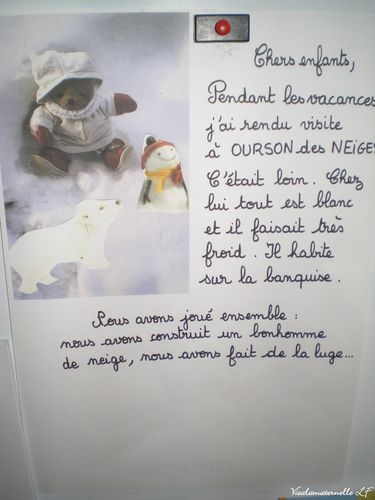 Chers enfants,
Pendant les vacances
j'ai rendu visite
à OURSON des NEIGES
C'était loin. Chez
lui tout est blanc
et il faisait très
froid. Il habite
sur la banquise.
Nous avons joué ensemble :
nous avons construit un bonhomme
de neige, nous avons fait de la luge...
Vivalamaternelle LF